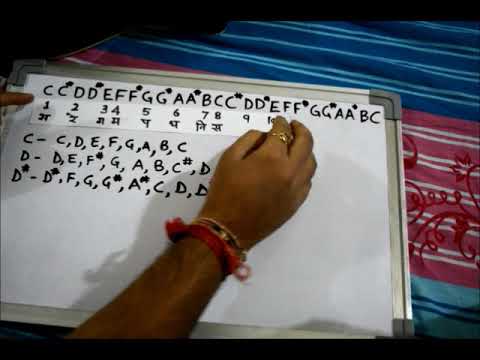 C C* D D* E F F* G G* A A* B C C* D D* E F F* G G* A A* B C
1 2 3 4 5 6 7 8 9
रे ग म प ध नि स
C - C, D, E, F, G, A, B, C
D - D, E, F*, G, A, B, C*, D
D* - D*, F, G, G*, A*, C, D, D